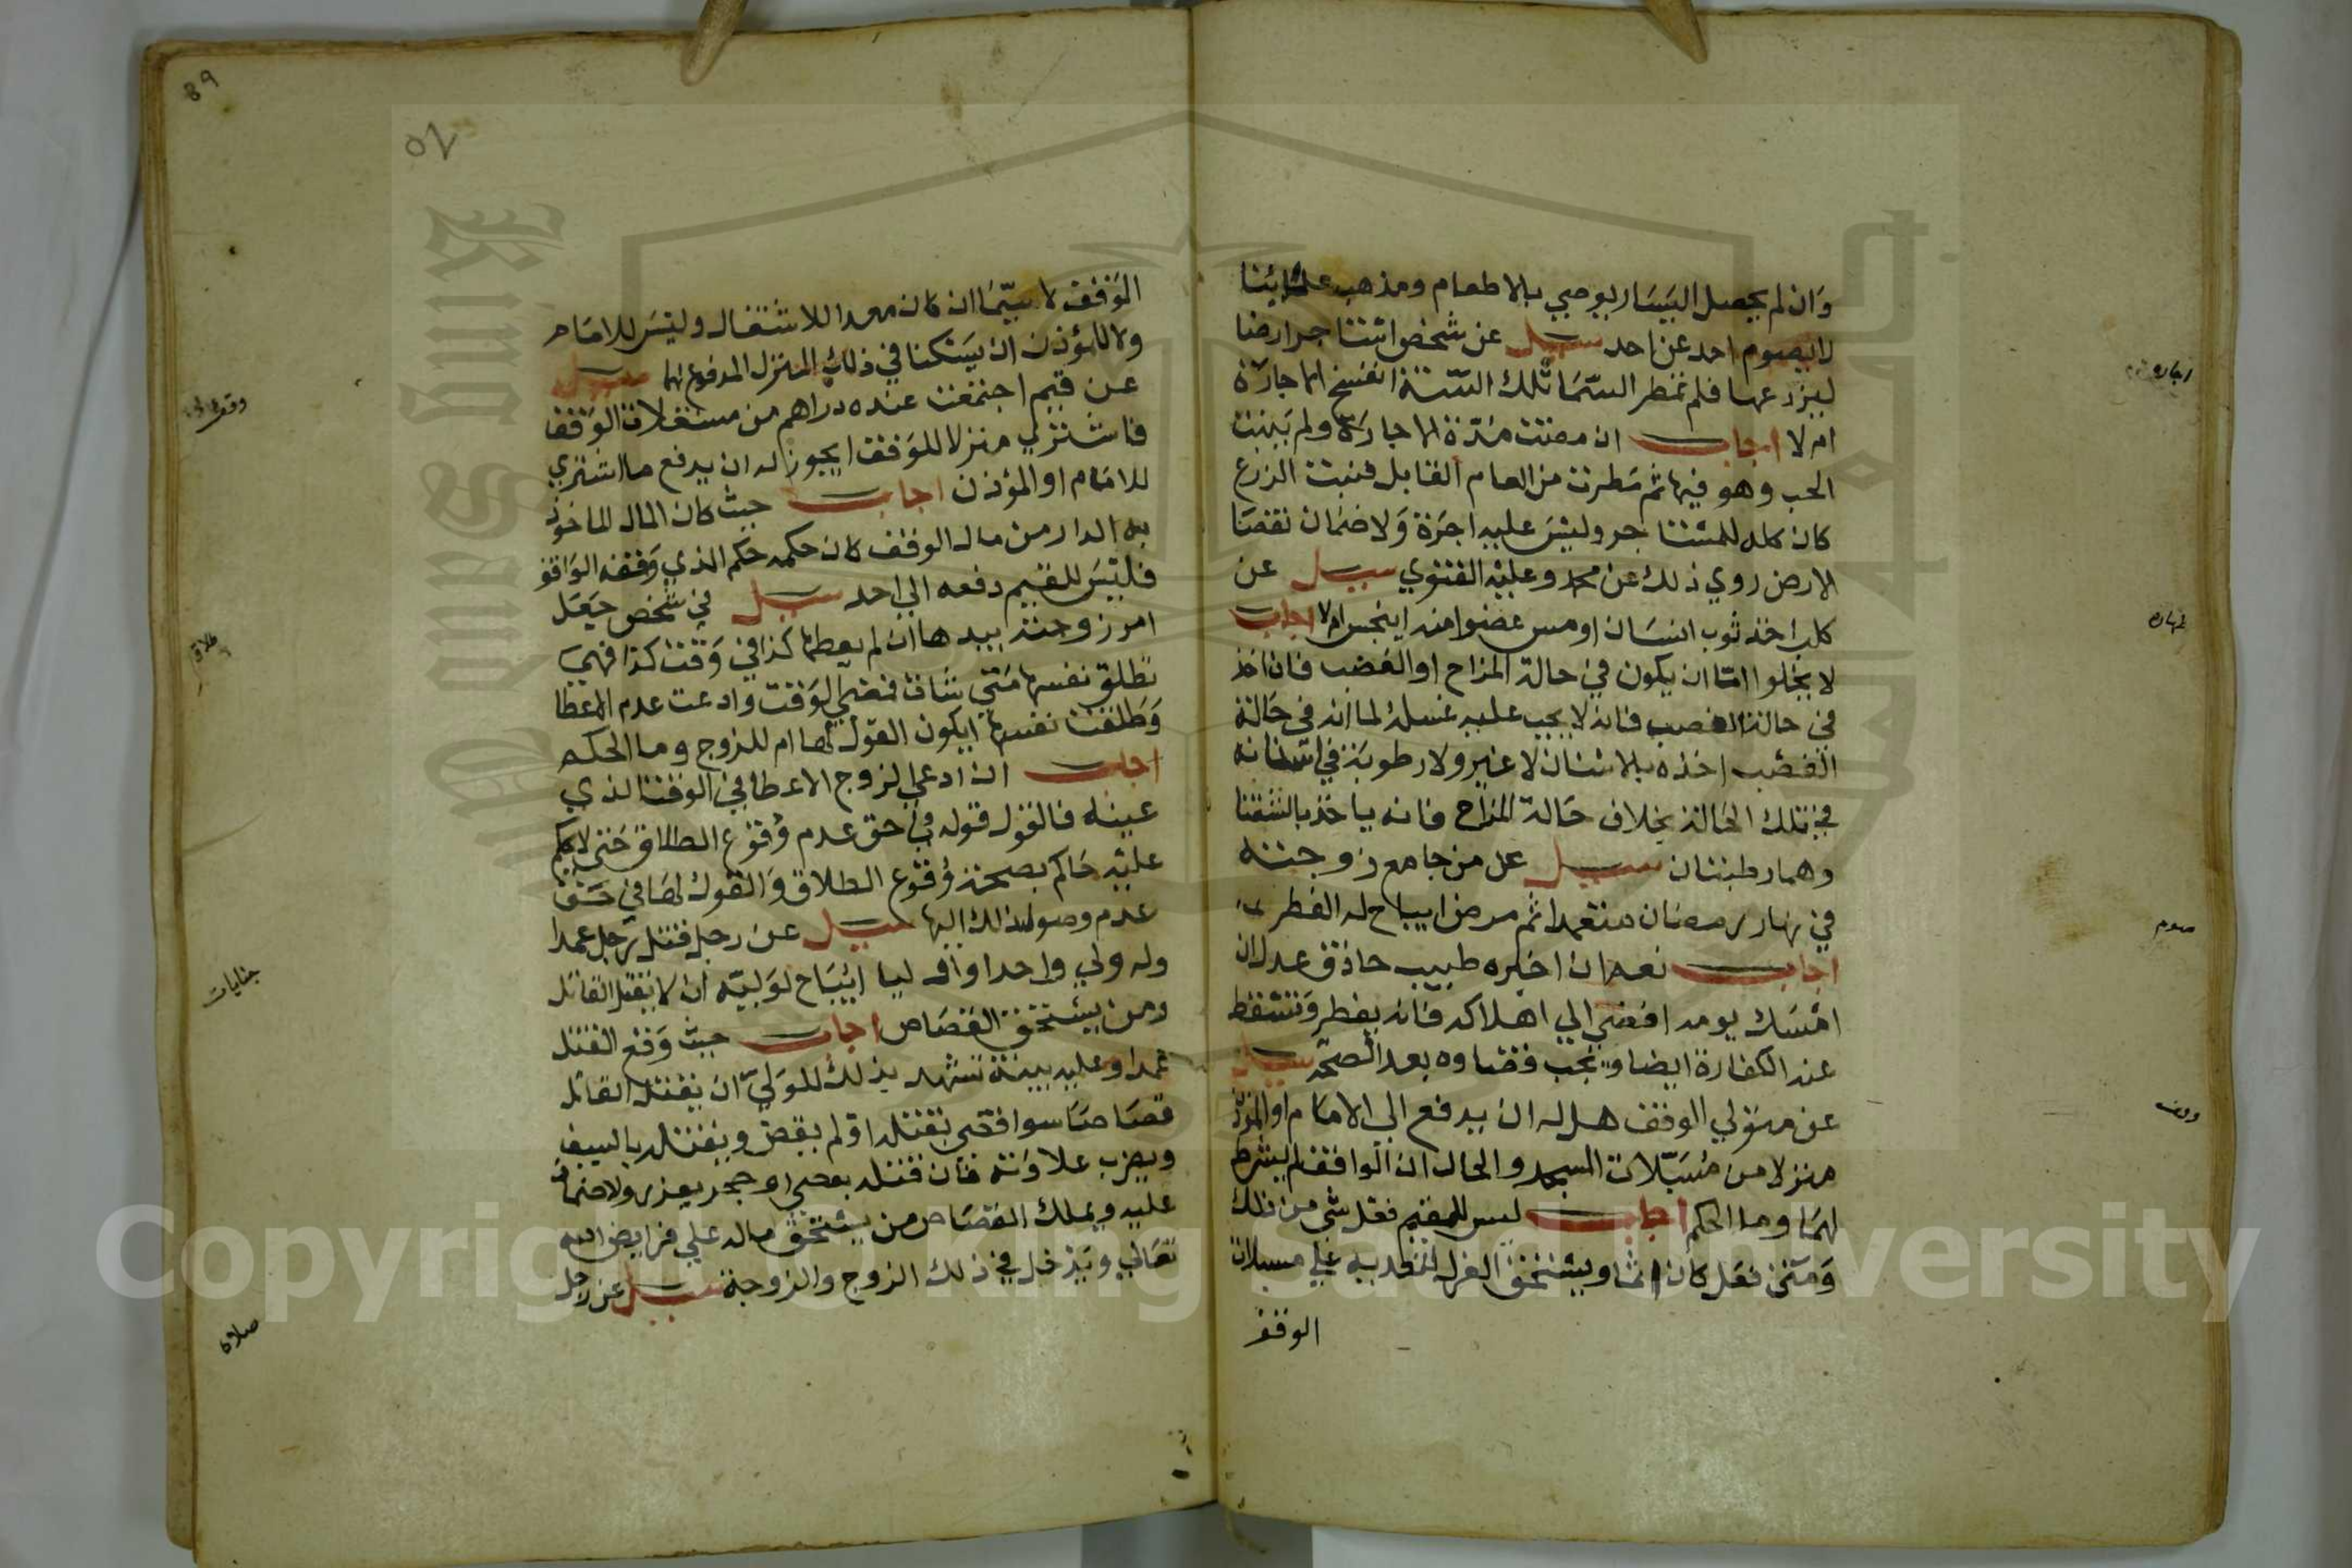 وان لم يحصل اليسار يوصي بالاطعام ومذهب علمائنا
لا يصوم احد عن احد سيل عن شخص استاجر ارضا
ليزرعها فلم تمطر السما تلك السنة اتفسخ الاجارة
ام لا اجاب ان مضت مدة الاجارة ولم ينبت
الحب وهو فيها ثم مطرت من العام القابل فنبت الزرع
كان كله للمستاجر وليس عليه اجرة ولا ضمان نقصا
الارض روي ذلك عن محمد وعليه الفتوي سيل عن
كلب اخذ ثوب انسان او مس عضوا منه اينجس ام لا اجاب
لا يخلوا اما ان يكون في حالة المزاح او الغضب فان اخذ
في حالة الغضب فانه لا يجب عليه غسله لما انه في حالة
الغضب اخذه بالاسنان لا غير ولا رطوبة في اسنانه
في تلك الحالة بخلاف حالة المزاح فانه ياخذ بالشفتا
وهما رطبتان سيل عن من جامع زوجته
في نهار رمضان متعمدا ثم مرض ايباح له الفطر
اجاب نعم ان اخبره طبيب حاذق عدل ان
امسك يومه افضي الي اهلاكه فانه يفطر وتسقط
عنه الكفارة ايضا ويجب قضاوه بعد الصحة سيل
عن متولي الوقف هل له ان يدفع الي الامام او الموذن
منزلا من مسبلات المسجد والحال ان الواقف لم يشرط
لهما وما الحكم اجاب ليس للقيم فعل شي من ذلك
ومتي فعل كان اثما ويستحق العزل لتعديه علي مسبلات
الوقف
اجاره
طهاره
صوم
وقف
89
52
الوقف لا سيما ان كان معدا للاشتغال وليس للامام
ولا للمؤذن ان يسكنا في ذلك المنزل المدفوع لهما سيل
عن قيم اجتمعت عنده دراهم من مستغلات الوقف
فاشتري منزلا للوقف ايجوز له ان يدفع ما اشتري
للامام او المؤذن اجاب حيث كان المال الماخوذ
به الدار من مال الوقف كان حكمه حكم الذي وقفه الواقف
فليس للقيم دفعه الي احد سيل في شخص جعل
امر زوجته بيدها ان لم يعطها كذا في وقت كذا فهي
تطلق نفسها متي شات فمضي الوقت وادعت عدم الاعطا
وطلقت نفسها ايكون القول لها ام للزوج وما الحكم
اجاب ان ادعي الزوج الاعطا في الوقت الذي
عينه فالقول قوله في حق عدم وقوع الطلاق حتي لا يحكم
عليه حاكم بصحة وقوع الطلاق والقول لها في حق
عدم وصول ذلك اليها سيل عن رجل قتل رجل عمدا
وله ولي واحد او اوليا ايباح لوليه ان لا يقتل القاتل
ومن يستحق القصاص اجاب حيث وقع القتل
عمدا وعليه بينة تشهد بذلك للولي ان يقتل القاتل
قصاصا سوا قضي بقتله او لم يقض ويقتله بالسيف
ويضرب علاوته فان قتله بعصي او حجر يعزر ولا ضمان
عليه ويملك القصاص من يستحق ماله علي فرايض الله
تعالي ويدخل في ذلك الزوج والزوجة سيل عن رجل
وقف
طلاق
جنايات
صلاة
Copyright © King Saud University